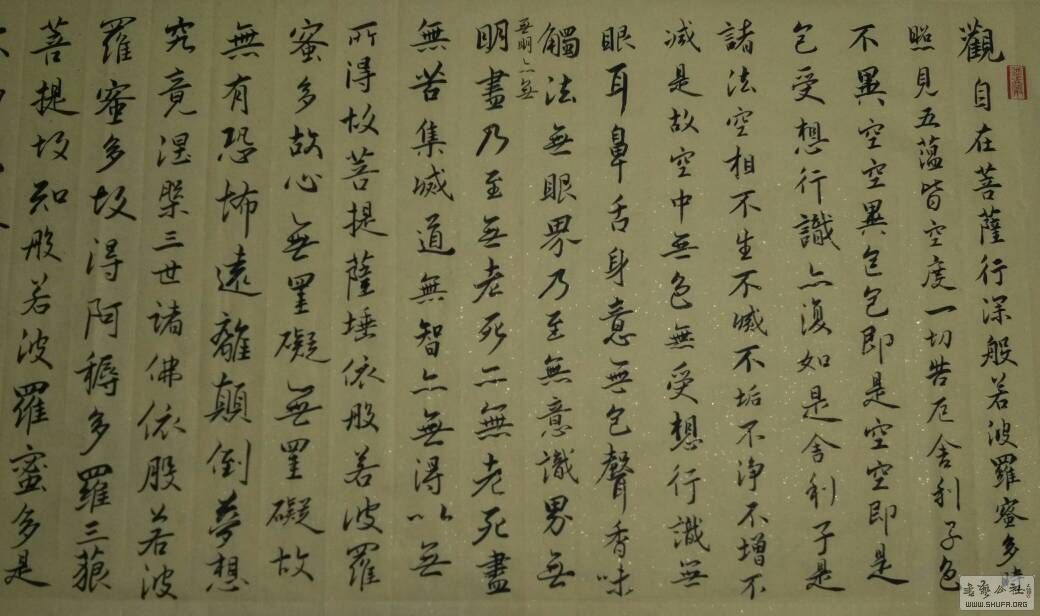 觀自在菩薩行深般若波羅蜜多時
照見五蘊皆空度一切苦厄舍利子色
不異空空異色色即是空空即是
色受想行識亦復如是舍利子是
諸法空相不生不滅不垢不淨不增不
減是故空中無色無受想行識無
眼耳鼻舌身意無色聲香味
觸法無眼界乃至無意識界無
無明亦無
明盡乃至無老死亦無老死盡
無苦集滅道無智亦無得以無
所得故菩提薩埵依般若波羅
蜜多故心無罣礙無罣礙故
無有恐怖遠離顛倒夢想
究竟涅槃三世諸佛依般若波
羅蜜多故得阿耨多羅三藐
菩提故知般若波羅蜜多是
WWW.SHUFA.ORG